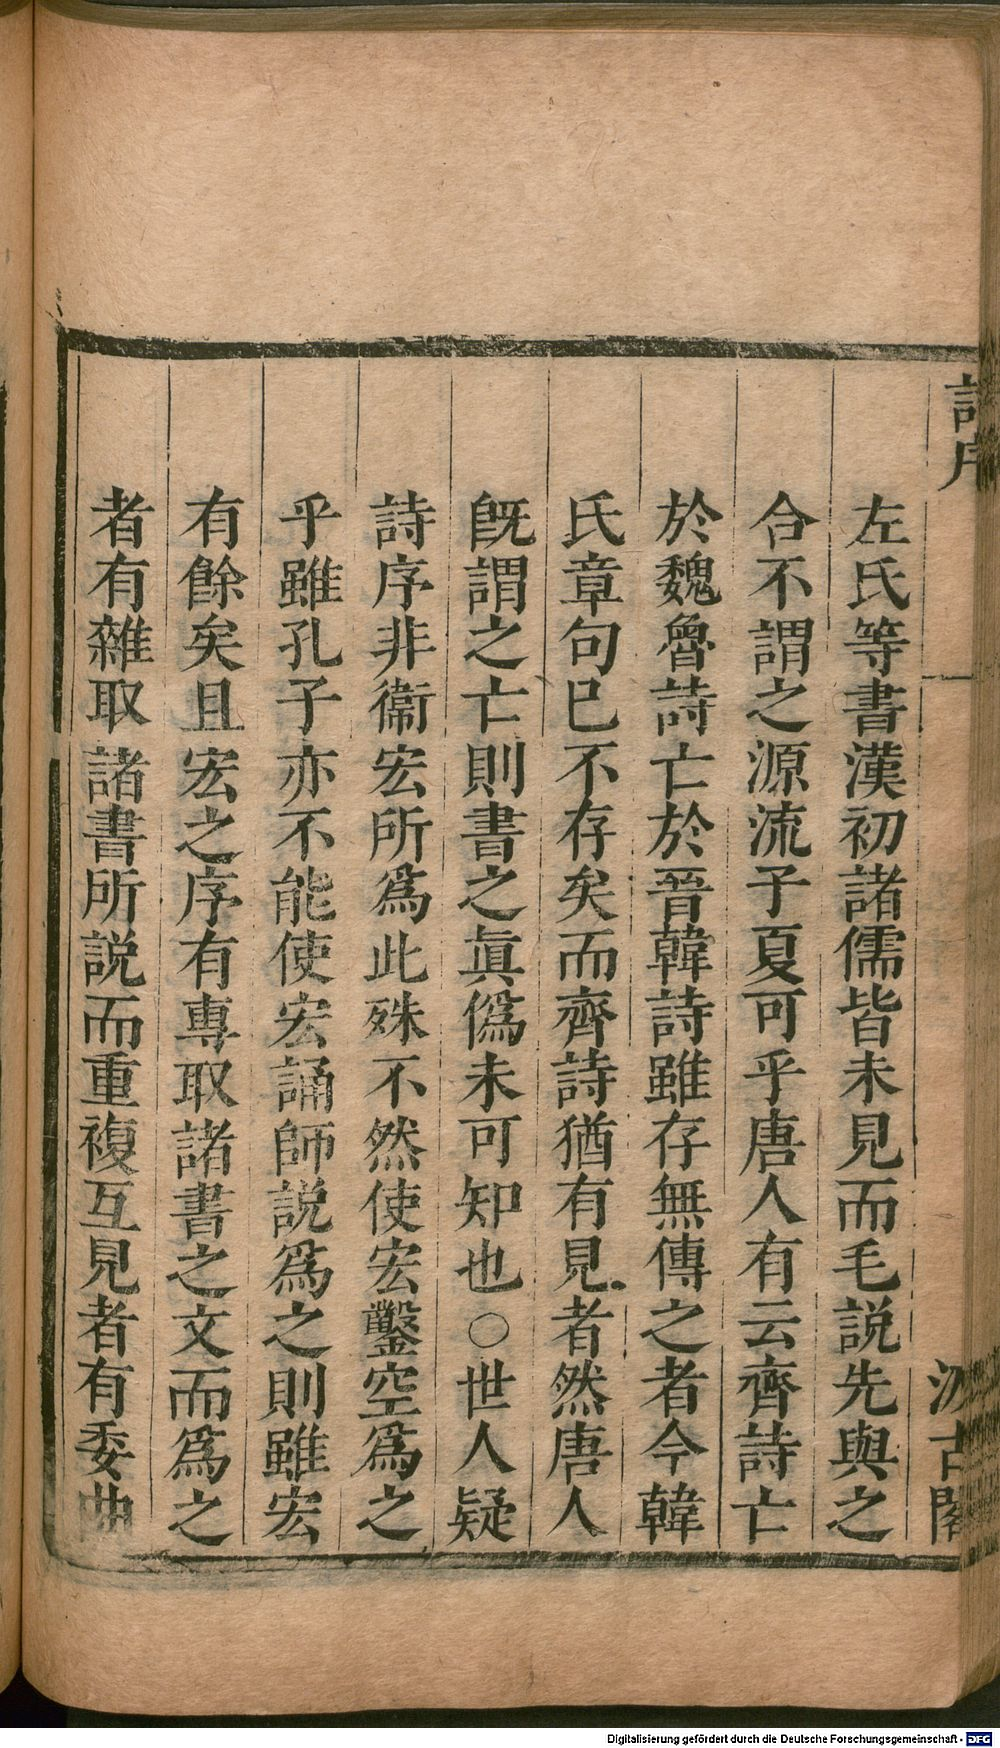 詩序
汲古閣
左氏等書漢初諸儒皆未見而毛説先與之
合不謂之源流子夏可乎唐人有云齊詩亡
於魏魯詩亡於晉韓詩雖存無傳之者今韓
氏章句已不存矣而齊詩猶有見者然唐人
旣謂之亡則書之眞僞未可知也○世人疑
詩序非衞宏所爲此殊不然使宏鑿空爲之
乎雖孔子亦不能使宏誦師説爲之則雖宏
有餘矣且宏之序有專取諸書之文而爲之
者有雜取諸書所説而重複互見者有委曲
Digitalisierung gefördert durch die Deutsche Forschungsgemeinschaft - DFG